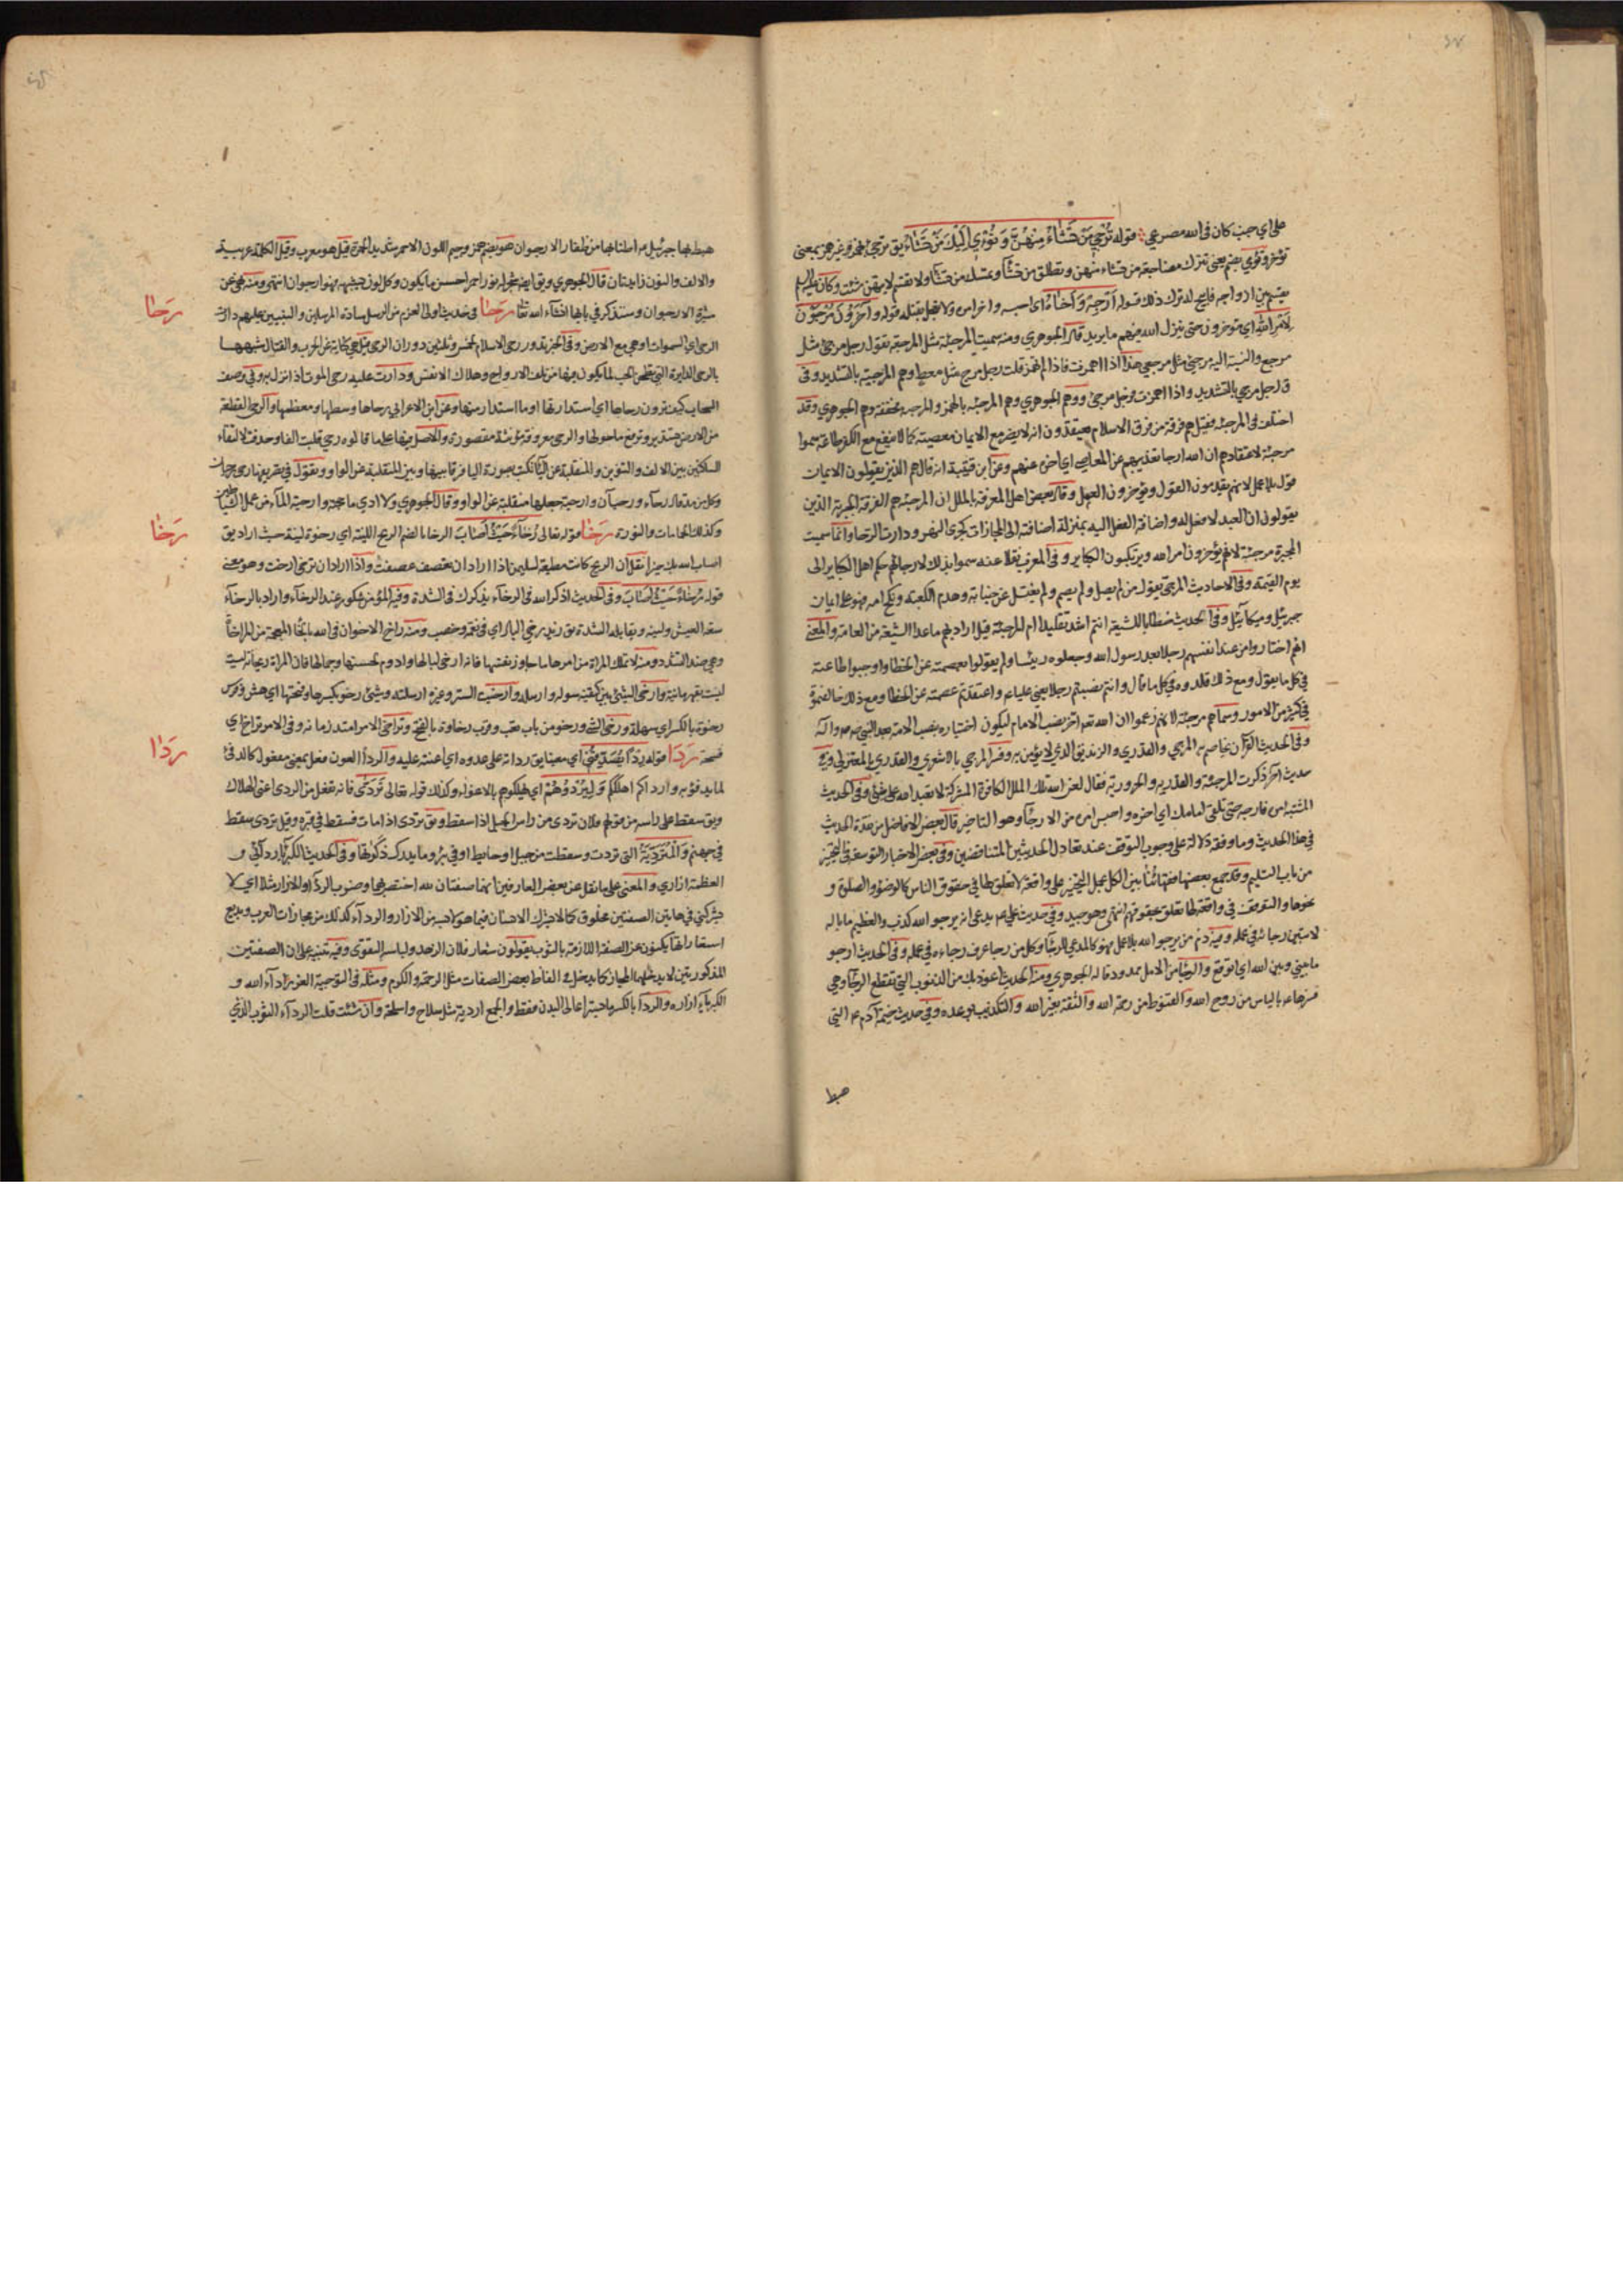 على اي جنب كان في الله مصرعي قوله ترجي من تشاء منهن وتؤوي اليك من تشاء يق ترجئ بهمز وغير همز بمعنى
تؤخر وتؤوي بضم يعني تترك مضاجعة من تشاء منهن وتطلق من تشاء وتمسك من تشاء ولا تقسم لايهن شئت وكان
يقسم بين ازواجه فابيح له ترك ذلك قوله ارجه واخاه اي احبسه واخر امره ولا تعجل بقتله قوله وآخرون مرجون
لامر الله اي مؤخرون حتى ينزل الله فيهم ما يريد قال الجوهري ومنه سميت المرجئة مثل المرجعة يقول رجل مرجئ مثل
مرجع والنسبة اليه مرجئي مثل مرجعي هذا اذا همزت فاذا لم تهمز قلت رجل مرج مثل معط وهم المرجية بالتشديد وفي
ق رجل مرجي بالتشديد واذا همزت فرجل مرجئ ووهم الجوهري وهم المرجئة بالهمز والمرجية مخففة وهم الجوهري وقد
اختلف في المرجئة فقيل هم فرقة من فرق الاسلام يعتقدون انه لا يضر مع الايمان معصية كما لا ينفع مع الكفر طاعة سموا
مرجئة لاعتقادهم ان الله ارجا تعذيبهم عن المعاصي اي اخره عنهم وعن ابن قتيبة انه قال هم الذين يقولون الايمان
قول بلا عمل لانهم يقدمون القول ويؤخرون العمل وقال بعض اهل المعرفة بالملل ان المرجئة هم الفرقة الجبرية الذين
يقولون ان العبد لا فعل له واضافة الفعل اليه بمنزلة اضافته الى المجازات كجرى النهر ودارت الرحا وانما سميت
المجبرة مرجئة لانهم يؤخرون امر الله ويرتكبون الكباير وفي المغرب نقلا عنه سموا بذلك لارجائهم حكم اهل الكباير الى
يوم القيمة وفي الاحاديث المرجئ يقول من لم يصل ولم يصم ولم يغتسل عن جنابة وهدم الكعبة ونكح امه فهو على ايمان
جبرئيل وميكائيل وفي الحديث خطابا للشيعة انتم اشد تقليدا ام المرجئة قيل اراد بهم ما عدا الشيعة من العامة والمعنى
انهم اختاروا من عند انفسهم رجلا بعد رسول الله وجعلوه رئيسا ولم يقولوا بعصمته عن الخطا واوجبوا طاعته
في كل ما يقول ومع ذلك قلدوه في كل ما قال وانتم نصبتم رجلا يعني عليا ع واعتقدتم عصمته عن الخطا ومع ذلك خالفتموه
في كثير من الامور وسماهم مرجئة لانهم زعموا ان الله تعم اخر نصب الامام ليكون اختياره بنصب الامة بعد النبي صم وآله
وفي الحديث القرآن يخاصم به المرجي والقدري والزنديق الذي لا يؤمن به وفسر المرجي بالاشعري والقدري بالمعتزلي وفي
حديث آخر ذكرت المرجئة والقدرية والحرورية فقال لعن الله تلك الملل الكافرة المشركة لا تعبد الله على شئ وفي الحديث
المشتبه امره فارجه حتى تلقى امامك اي اخره واحبس امره من الارجاء وهو التاخير قال بعض الافاضل من نقدة الحديث
في هذا الحديث وما وافقه دلالة على وجوب التوقف عند تعادل الحديثين المتناقضين وفي بعض الاخبار التوسعة في التخيير
من باب التسليم وقد جمع بعض فقهائنا بين الكل بحمل التخيير على واقعة لا تعلق لها في حقوق الناس كالوضوء والصلوة و
نحوها والتوقف في واقعة لها تعلق بحقوقهم انتهى وهو جيد وفي حديث علي عم يدعي انه يرجو الله كذب والعظيم ما باله
لا يتبين رجاؤه في عمله وفيه ذم من يرجو الله بلا عمل فهو كالمدعي للرجاء وكل من رجا عرف رجاءه في عمله وفي الحديث ارجو
ما بيني وبين الله اي اتوقع والرجاء من الامل ممدود قاله الجوهري ومنه الحديث اعوذ بك من الذنوب التي تقطع الرجاء وهي
فسرها عم بالياس من روح الله والقنوط من رحمة الله والثقة بغير الله والتكذيب بوعده وفي حديث خيمة آدم ع التي
هبط
هبط بها جبرئيل ع اطنابها من ظفاير الارجوان هو بضم همز وجيم اللون الاحمر شديد الحمرة قيل هو معرب وقيل الكلمة عربية
والالف والنون زايدتان قال الجوهري ويق ايضه شجر له نور احمر احسن ما يكون وكل لون يشبهه فهو ارجوان انتهى ومنه نهى عن
ميثرة الارجوان وستذكر في بابها انشاء الله تعالى رحا في حديث اولي العزم من الرسل سادة المرسلين والنبيين عليهم دارت
الرحى اي السموات او هي مع الارض وفي الخبر تدور رحى الاسلام لخمس وثلثين دوران الرحى قيل هي كناية عن الحرب والقتال شبهها
بالرحى الدايرة التي تطحن الحب لما يكون فيها من تلف الارواح وهلاك الانفس ودارت عليه رحى الموت اذا نزل به وفي وصف
السحاب كيف ترون رحاها اي استدارتها او ما استدار منها وعن ابن الاعرابي رحاها وسطها ومعظمها والرحى القطعة
من الارض تستدير وترتفع ما حولها والرحى معروفة مؤنثة مقصورة والاصل فيها على ما قالوه رحي قلبت الفا وحذفت لالتقاء
الساكنين بين الالف والتنوين والمنقلبة عن الياء تكتب بصورة الياء فرقا بينها وبين المنقلبة عن الواو ويقول في تعريفها رحى ورحيان
وكل من مد قال رحاء ورحاآن وارحية جعلها منقلبة عن الواو وقال الجوهري ولا ادري ما حجته وارحية الماء من عمل الشياطين
وكذلك الحمامات والنورة رخا قوله تعالى رخاء حيث اصاب الرخاء بالضم الريح اللينة اي رخوة لينة حيث اراد يق
اصاب الله بك خيرا نقل ان الريح كانت مطيعة لسليمن اذا اراد ان تعصف عصفت واذا اراد ان ترخي ارخت وهو معنى
قوله رخاء حيث اصاب وفي الحديث اذكر الله في الرخاء يذكرك في الشدة وفيه المؤمن شكور عند الرخاء واراد بالرخاء
سعة العيش ولينه ويقابله الشدة يق زيد رخي البال اي في نعمة وخصب ومنه راخ الاخوان في الله بالخاء المعجمة من المراخاة
وهي ضد التشدد ومنه لا تملك المراة من امرها ما جاوز نفسها فانه ارخى لبالها وادوم لحسنها وجمالها فان المراة ريحانة وليست
ليست بقهرمانة وارخى الشئ بين كتفيه سدله وارسله وارخيت الستر وغيره ارسلته وشئ رخو بكسر راء وفتحها اي هش وفرس
رخوة بالكسر اي سهلة ورخي الشئ ورخو من باب تعب وقرب رخاوة بالفتح وتراخى الامر امتد زمانه وفي الامر تراخ اي
فسحة ردا قوله ردءا يصدقني اي معينا يق رداته على عدوه اي اعنته عليه والردأ العون فعل بمعنى مفعول كالدفئ
لما يدفؤ به وارداكم اهلككم وليردوهم اي يهلكوهم بالاغواء وكذلك قوله تعالى تردى فانه تفعل من الردى اعني الهلاك
ويق سقط على راسه من قولهم فلان تردى من راس الجبل اذا سقط ويق تردى اذا مات فسقط في قبره وقيل تردى سقط
في جهنم والمتردية التي تردت وسقطت من جبل او حايط او في بئر وما يدرك ذكوتها وفي الحديث الكبرياء ردائي و
العظمة ازاري والمعنى على ما نقل عن بعض العارفين انهما صفتان لله اختص بهما وضرب الرداء والازار مثلا اي لا
يشركني في هاتين الصفتين مخلوق كما لا يشرك الانسان فيما هو لابسه من الازار والرداء كذلك من مجازات العرب وبديع
استعاراتها يكنون عن الصفة اللازمة بالثوب يقولون شعار فلان الزهد ولباسه التقوى وفيه تنبيه على ان الصفتين
المذكورتين لا يدخلهما المجاز كما يدخل في الفاظ بعض الصفات مثل الرحمة والكرم ومثله في التوحيد العز رداء الله و
الكبرياء ازاره والرداء بالكسر ما يستر اعالي البدن فقط والجمع اردية مثل سلاح واسلحة وان شئت قلت الرداء الثوب الذي
رحا
رخا
ردا